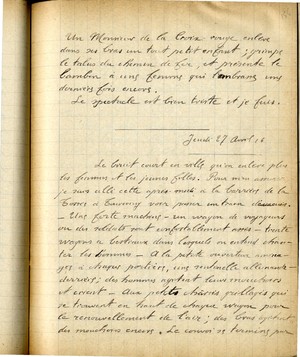 Un Monsieur de la Croix rouge enlève
dans ses bras un tout petit enfant ; grimpe
le talus du chemin de fer, et présente le
bambin à une femme qui l'embrasse une
dernière fois encore.
Le spectacle est bien triste et je fuis.
Jeudi 27 Avril 16
Le bruit court en ville qu'on enlève plus
les femmes et les jeunes filles. Pour m'en assurer
je suis allé cette après-midi à la barrière de la
à Tourcoing voir passer un train
Une forte machine - un wagon de voyageurs
où des soldats sont confortablement assis - trente
wagons à bestiaux dans lesquels on entend chan-
ter les hommes - A la petite ouverture
à chaque portière, une sentinelle allemande
derrière, des hommes agitent leurs mouchoirs
et crient - Aux petits châssis grillagés qui
se trouvent en haut de chaque wagon pour
le renouvellement de l'air, des bras agitent
des mouchoirs encore. Le convoi se termine par